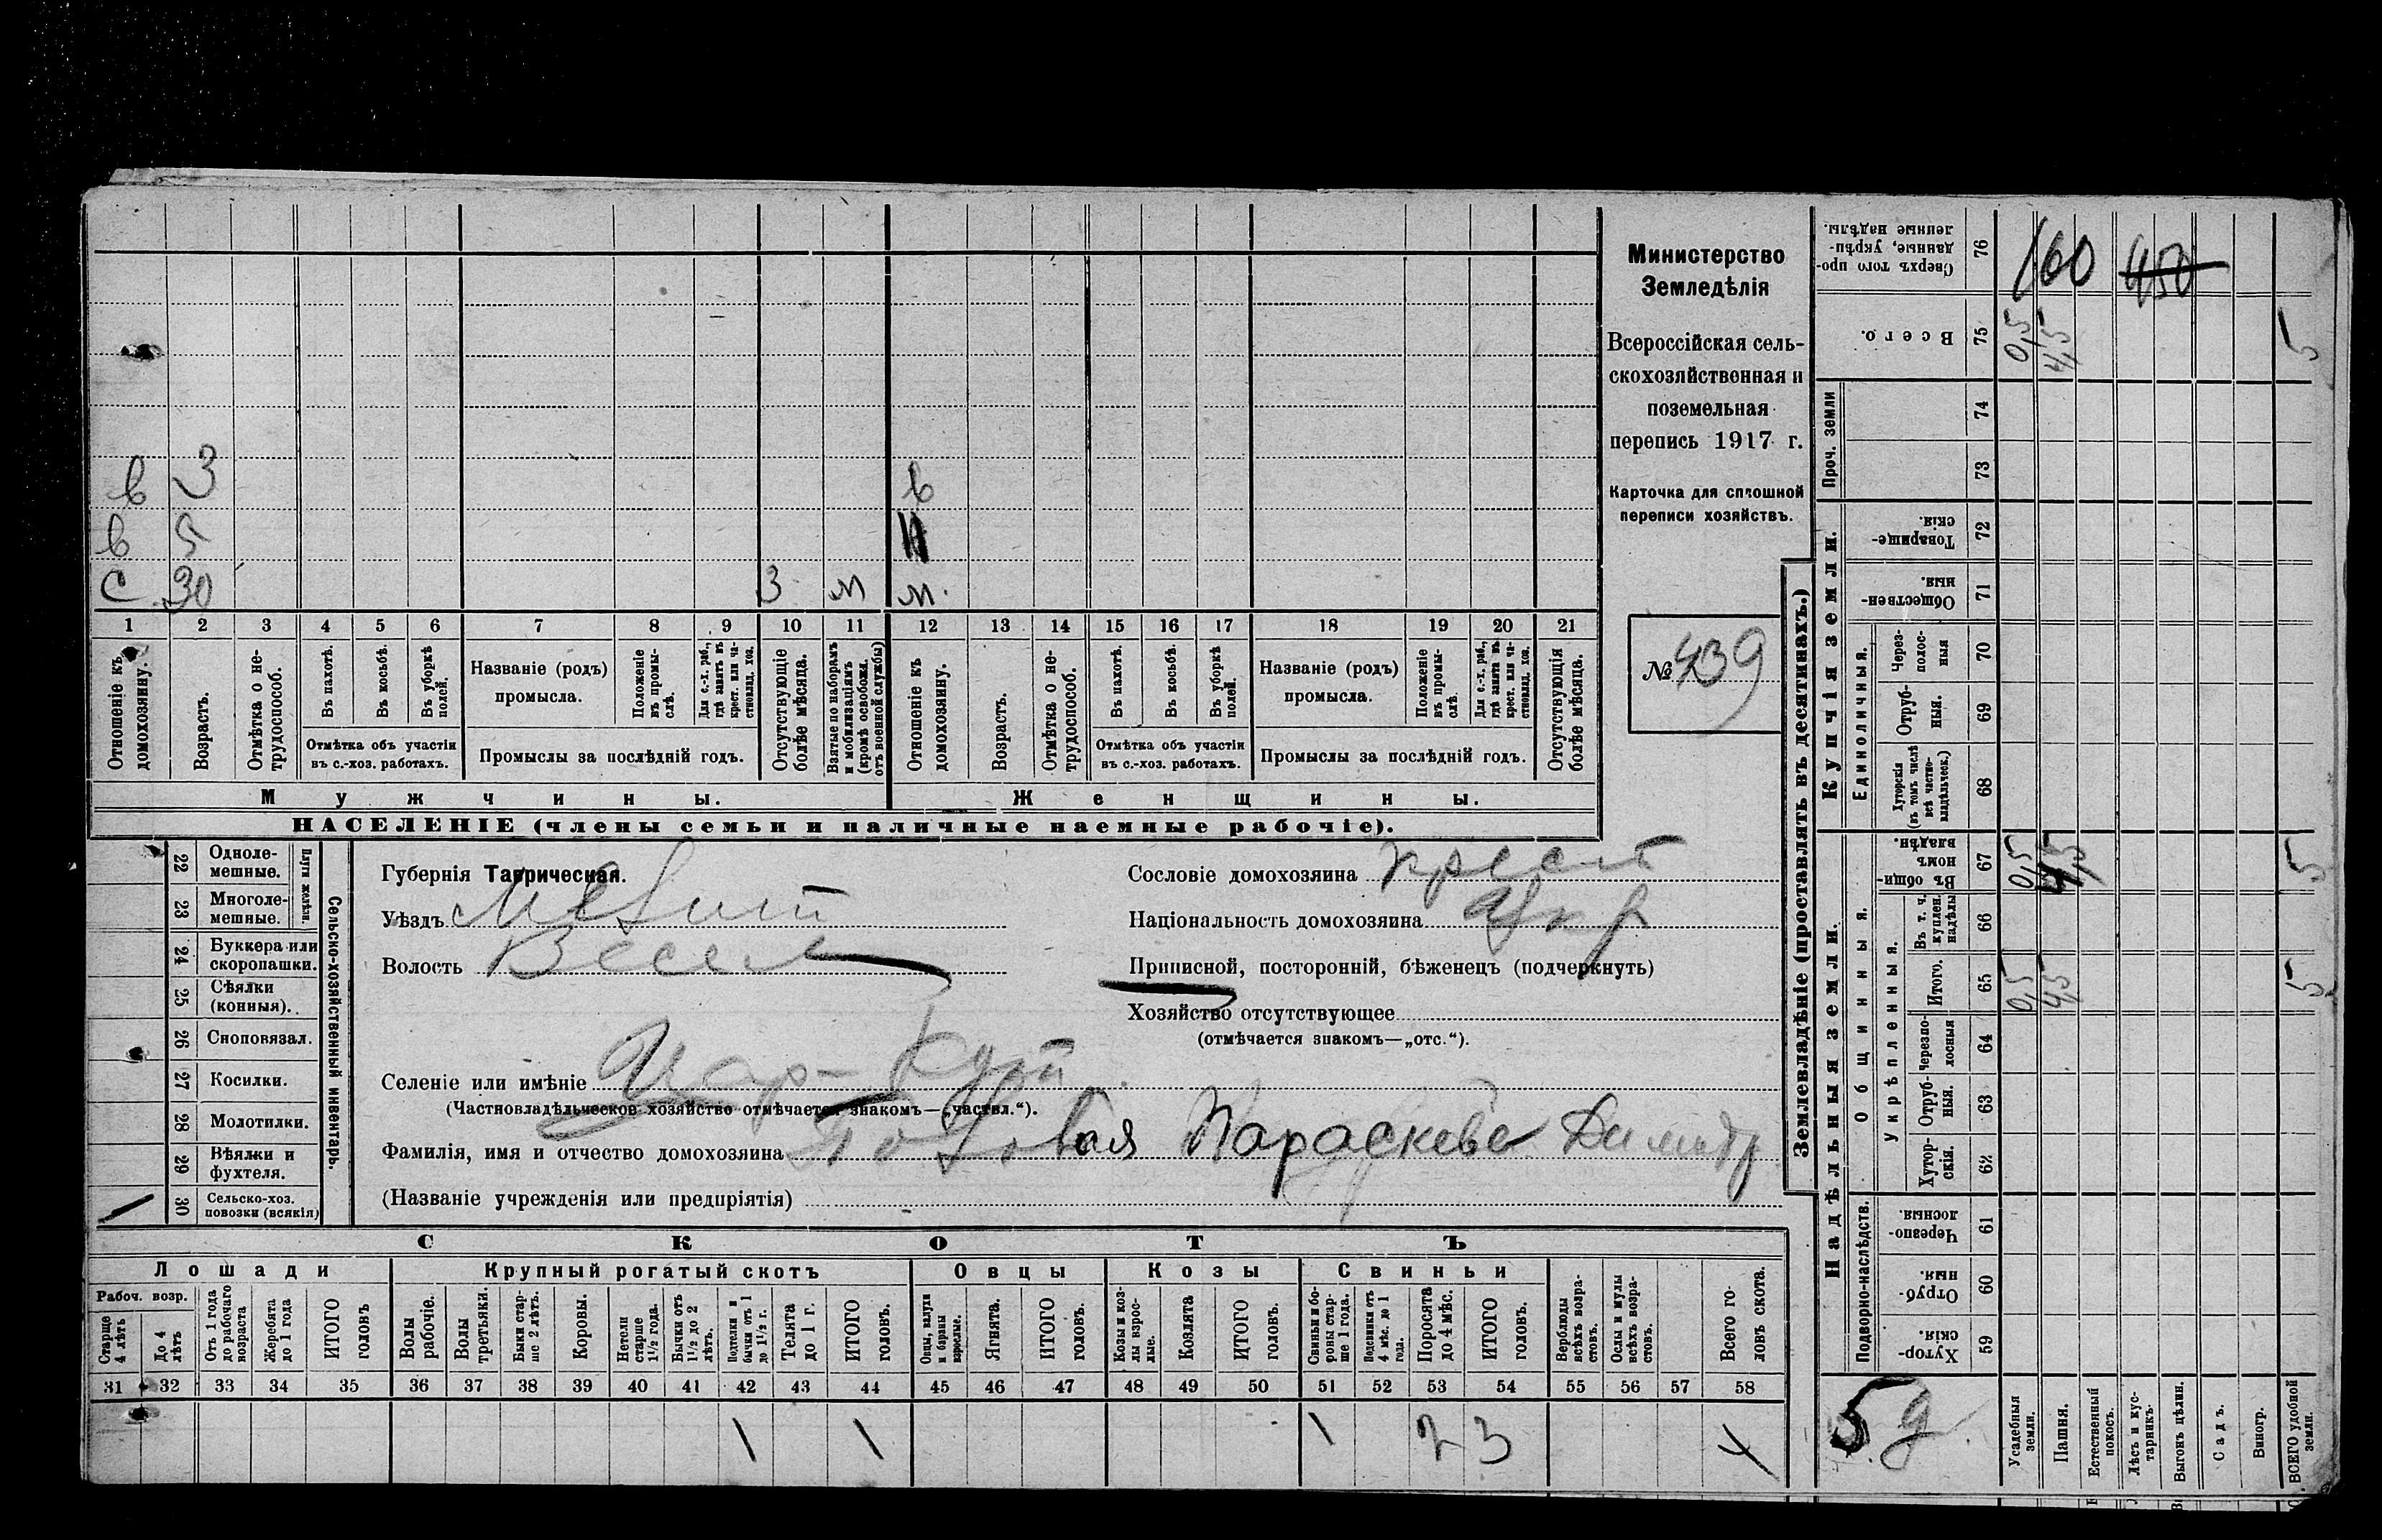 Министерство
Земледѣлія
Всероссійская сель-
скохозяйственная и
поземельная
перепись 1917 г.
Карточка для сплошной
переписи хозяйствъ.
№ 439
в 3 в
в 5
с 30 3 м м.
1 2 3 4 5 6 7 8 9 10 11 12 13 14 15 16 17 18 19 20 21
Отношеніе къ домохозяину.
Возрастъ.
Отмѣтка о не-трудоспособ.
Въ пахотѣ.
Въ косьбѣ.
Въ уборкѣ полей.
Отмѣтка объ участіи въ с.-хоз. работахъ.
Названіе (родъ) промысла.
Положеніе въ промы-слѣ.
Для с.-х. раб., гдѣ занятъ въ крест. или ча-стновлад. хоз.
Промыслы за послѣдній годъ.
Отсутствующіе болѣе мѣсяца.
Взятые по наборамъ и мобилизаціямъ (кромѣ освобожд. отъ военной службы)
Отношеніе къ домохозяину.
Возрастъ.
Отмѣтка о не-трудоспособ.
Въ пахотѣ.
Въ косьбѣ.
Въ уборкѣ полей.
Отмѣтка объ участіи въ с.-хоз. работахъ.
Названіе (родъ) промысла.
Положеніе въ промы-слѣ.
Для с.-х. раб., гдѣ занята въ крест. или ча-стновлад. хоз.
Промыслы за послѣдній годъ.
Отсутствующія болѣе мѣсяца.
Мужчины. Женщины.
НАСЕЛЕНІЕ (члены семьи и наличные наемные рабочіе).
22 Одноле-мешные.
23 Многоле-мешные.
Плуги желѣзн.
24 Буккера или скоропашки.
25 Сѣялки (конныя).
26 Сноповязал.
27 Косилки.
28 Молотилки.
29 Вѣялки и фухтеля.
30 Сельско-хоз. повозки (всякія)
Сельско-хозяйственный инвентарь.
Губернія Таврическая.
Уѣздъ Мелит
Волость Весел
Сословіе домохозяина крест
Національность домохозяина Укр
Приписной, посторонній, бѣженецъ (подчеркнуть)
Хозяйство отсутствующее
(отмѣчается знакомъ—„отс.“).
Селеніе или имѣніе
(Частновладѣльческое хозяйство отмѣчается знакомъ—„частвл.“).
Фамилія, имя и отчество домохозяина Параскева Димитр
(Названіе учрежденія или предпріятія)
СКОТЪ
Лошади Крупный рогатый скотъ Овцы Козы Свиньи
Рабоч. возр.
Старше 4 лѣтъ
До 4 лѣтъ
Отъ 1 года до рабочаго возраста
Жеребята до 1 года
ИТОГО головъ
Волы рабочіе.
Волы третьяки.
Быки стар-ше 2 лѣтъ.
Коровы.
Нетели старше 1½ года.
Бычки отъ 1½ до 2 лѣтъ.
Подтелки и бычки отъ 1 до 1½ г.
Телята до 1 г.
ИТОГО головъ.
Овцы, валухи и бараны взрослые.
Ягнята.
ИТОГО головъ.
Козы и коз-лы взрос-лые.
Козлята
ИТОГО головъ.
Свиньи и бо-ровы стар-ше 1 года.
Подсвинки отъ 4 мѣс. до 1 года.
Поросята до 4 мѣс.
ИТОГО головъ.
Верблюды всѣхъ возра-стовъ.
Ослы и мулы всѣхъ возра-стовъ.
Всего го-ловъ скота.
31 32 33 34 35 36 37 38 39 40 41 42 43 44 45 46 47 48 49 50 51 52 53 54 55 56 57 58
1 1 1 2 3 4
Землевладѣніе (проставлять въ десятинахъ.)
Надѣльныя земли. Купчія земли. Проч. земли
Подворно-наслѣдств. Общинныя. Единоличныя.
Укрѣпленныя.
Сверхъ того про-данные, укрѣп-ленные надѣлы. 76 160 450
Всего. 75 0,5 4,5 5
74
73
Товарище-скія. 72
Обществен-ныя. 71
Через-полос-ныя 70
Отруб-ныя. 69
Хуторскія (въ томъ числѣ всѣ частно-владѣльческ.) 68
Въ общин-номъ владѣн. 67 0,5 4,5 5
Въ т. ч. куплен. надѣлы 66
Итого. 65 0,5 4,5 5
Черезпо-лосныя 64
Отруб-ныя. 63
Хутор-скія. 62
Черезпо-лосныя. 61
Отруб-ныя. 60
Хутор-скія. 59
5 д.
Усадебныя земли.
Пашня.
Естественный покосъ.
Лѣсъ и кус-тарникъ.
Выгонъ цѣлин.
Садъ.
Виногр.
ВСЕГО удобной земли.